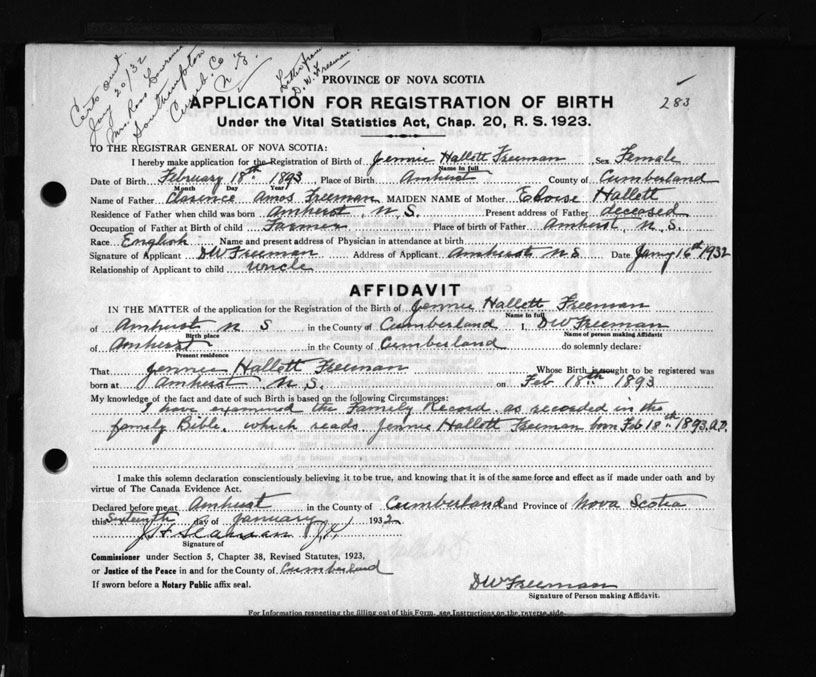 Certs out.
Jany 20/32
Mrs Ross Lawrence
Southampton
Cumb. Co
N.S.
Letter from
D. W. Freeman
PROVINCE OF NOVA SCOTIA
283
APPLICATION FOR REGISTRATION OF BIRTH
Under the Vital Statistics Act, Chap. 20, R. S. 1923.
TO THE REGISTRAR GENERAL OF NOVA SCOTIA:
I hereby make application for the Registration of Birth of Jennie Hallett Freeman Sex Female
Name in full
Date of Birth February 18th 1893 Place of Birth Amherst County of Cumberland
Month Day Year
Name of Father Clarence Amos Freeman MAIDEN NAME of Mother Eloise Hallett
Residence of Father when child was born Amherst, N.S. Present address of Father deceased
Occupation of Father at Birth of child Farmer Place of birth of Father Amherst, N.S.
Race English Name and present address of Physician in attendance at birth
Signature of Applicant DW Freeman Address of Applicant Amherst N.S. Date Jany 16th 1932
Relationship of Applicant to child uncle
AFFIDAVIT
IN THE MATTER of the application for the Registration of the Birth of Jennie Hallett Freeman
Name in full
of Amherst N S in the County of Cumberland I, DW Freeman
Birth place Name of person making Affidavit
of Amherst in the County of Cumberland do solemnly declare:
Present residence
That Jennie Hallett Freeman Whose Birth is sought to be registered was
born at Amherst N.S. on Feb 18th 1893
My knowledge of the fact and date of such Birth is based on the following Circumstances:
I have examined the Family Record as recorded in the
family Bible, which reads Jennie Hallett Freeman born Feb 18th 1893 A.D.
I make this solemn declaration conscientiously believing it to be true, and knowing that it is of the same force and effect as if made under oath and by
virtue of The Canada Evidence Act.
Declared before me at Amherst in the County of Cumberland and Province of Nova Scotia
this Sixteenth day of January 1932
Signature of
Commissioner under Section 5, Chapter 38, Revised Statutes, 1923,
or Justice of the Peace in and for the County of Cumberland
If sworn before a Notary Public affix seal.
DW Freeman
Signature of Person making Affidavit.
For Information respecting the filling out of this Form, see Instructions on the reverse side.